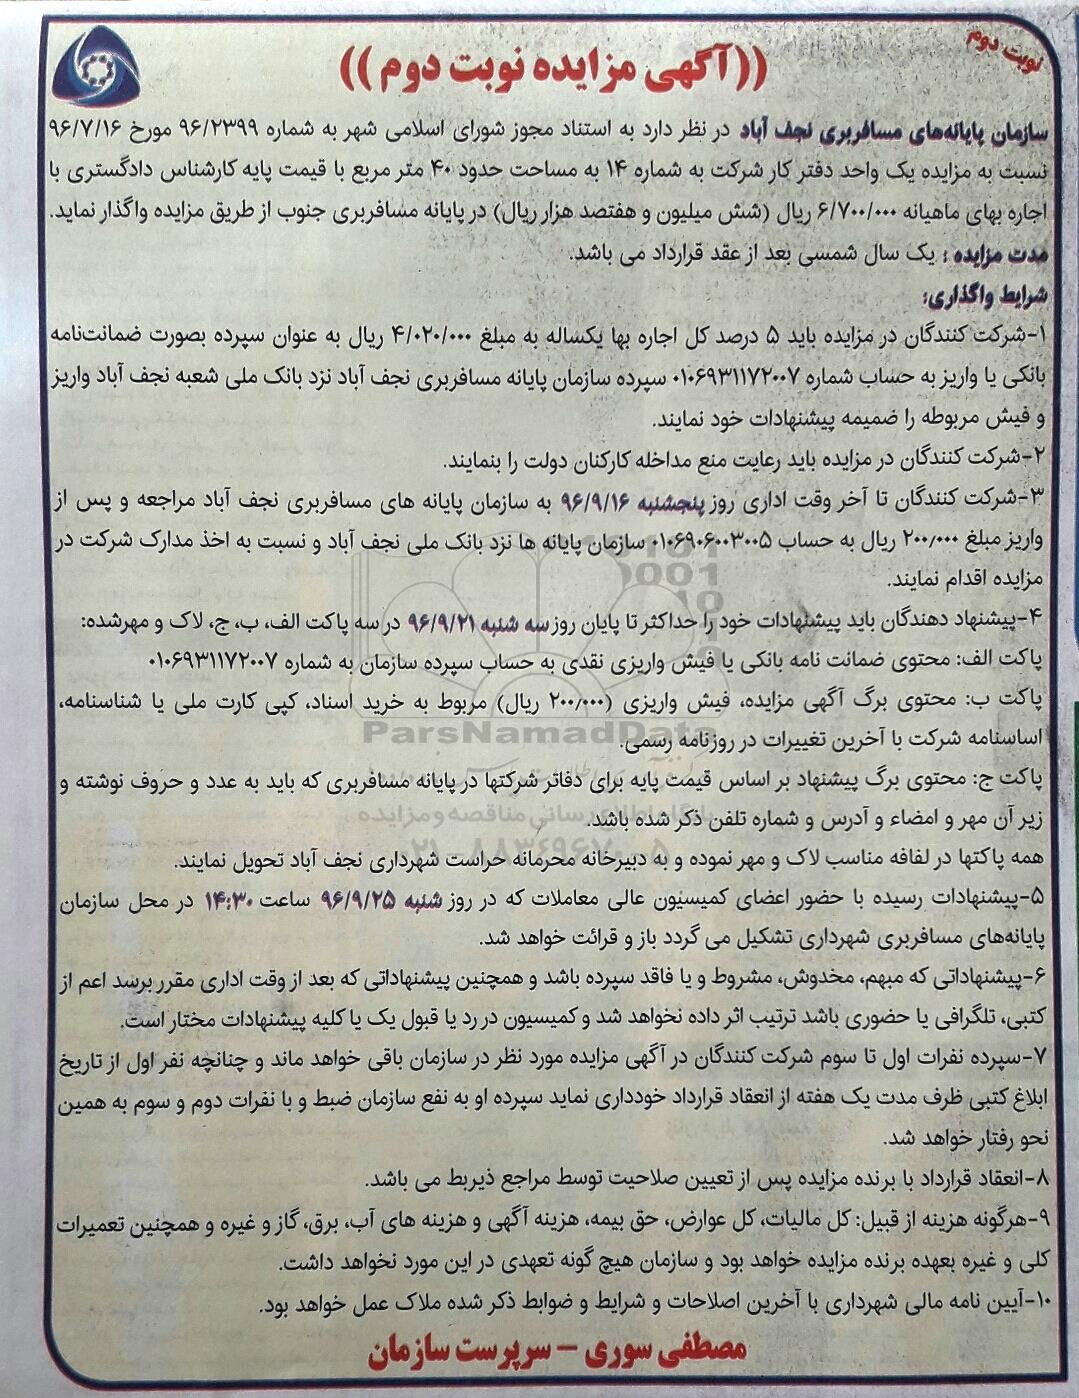 نوبت دوم
((آگهی مزایده نوبت دوم))
سازمان پایانه‌های مسافربری نجف آباد در نظر دارد به استناد مجوز شورای اسلامی شهر به شماره ۹۶/۲۳۹۹ مورخ ۹۶/۷/۱۶
نسبت به مزایده یک واحد دفتر کار شرکت به شماره ۱۴ به مساحت حدود ۴۰ متر مربع با قیمت پایه کارشناس دادگستری با
اجاره بهای ماهیانه ۶/۷۰۰/۰۰۰ ریال (شش میلیون و هفتصد هزار ریال) در پایانه مسافربری جنوب از طریق مزایده واگذار نماید.
مدت مزایده : یک سال شمسی بعد از عقد قرارداد می باشد.
شرایط واگذاری:
۱-شرکت کنندگان در مزایده باید ۵ درصد کل اجاره بها یکساله به مبلغ ۴/۰۲۰/۰۰۰ ریال به عنوان سپرده بصورت ضمانت‌نامه
بانکی یا واریز به حساب شماره ۰۱۰۶۹۳۱۱۷۲۰۰۷ سپرده سازمان پایانه مسافربری نجف آباد نزد بانک ملی شعبه نجف آباد واریز
و فیش مربوطه را ضمیمه پیشنهادات خود نمایند.
۲-شرکت کنندگان در مزایده باید رعایت منع مداخله کارکنان دولت را بنمایند.
۳-شرکت کنندگان تا آخر وقت اداری روز پنجشنبه ۹۶/۹/۱۶ به سازمان پایانه های مسافربری نجف آباد مراجعه و پس از
واریز مبلغ ۲۰۰٫۰۰۰ ریال به حساب ۰۱۰۶۹۰۶۰۰۳۰۰۵ سازمان پایانه ها نزد بانک ملی نجف آباد و نسبت به اخذ مدارک شرکت در
مزایده اقدام نمایند.
۴-پیشنهاد دهندگان باید پیشنهادات خود را حداکثر تا پایان روز سه شنبه ۹۶/۹/۲۱ در سه پاکت الف، ب، ج، لاک و مهرشده:
پاکت الف: محتوی ضمانت نامه بانکی یا فیش واریزی نقدی به حساب سپرده سازمان به شماره ۰۱۰۶۹۳۱۱۷۲۰۰۷
پاکت ب: محتوی برگ آگهی مزایده، فیش واریزی (۲۰۰٫۰۰۰ ریال) مربوط به خرید اسناد، کپی کارت ملی یا شناسنامه،
اساسنامه شرکت با آخرین تغییرات در روزنامه رسمی.
ParsNamadData
پاکت ج: محتوی برگ پیشنهاد بر اساس قیمت پایه برای دفاتر شرکتها در پایانه مسافربری که باید به عدد و حروف نوشته و
زیر آن مهر و امضاء و آدرس و شماره تلفن ذکر شده باشد.
پایگاه اطلاع رسانی مناقصه و مزایده
۰۲۱-۸۸۳۴۹۶۷۰-۵
همه پاکتها در لفافه مناسب لاک و مهر نموده و به دبیرخانه محرمانه حراست شهرداری نجف آباد تحویل نمایند.
۵-پیشنهادات رسیده با حضور اعضای کمیسیون عالی معاملات که در روز شنبه ۹۶/۹/۲۵ ساعت ۱۴:۳۰ در محل سازمان
پایانه‌های مسافربری شهرداری تشکیل می گردد باز و قرائت خواهد شد.
۶-پیشنهاداتی که مبهم، مخدوش، مشروط و یا فاقد سپرده باشد و همچنین پیشنهاداتی که بعد از وقت اداری مقرر برسد اعم از
کتبی، تلگرافی یا حضوری باشد ترتیب اثر داده نخواهد شد و کمیسیون در رد یا قبول یک یا کلیه پیشنهادات مختار است.
۷-سپرده نفرات اول تا سوم شرکت کنندگان در آگهی مزایده مورد نظر در سازمان باقی خواهد ماند و چنانچه نفر اول از تاریخ
ابلاغ کتبی ظرف مدت یک هفته از انعقاد قرارداد خودداری نماید سپرده او به نفع سازمان ضبط و با نفرات دوم و سوم به همین
نحو رفتار خواهد شد.
۸-انعقاد قرارداد با برنده مزایده پس از تعیین صلاحیت توسط مراجع ذیربط می باشد.
۹-هرگونه هزینه از قبیل: کل مالیات، کل عوارض، حق بیمه، هزینه آگهی و هزینه های آب، برق، گاز و غیره و همچنین تعمیرات
کلی و غیره بعهده برنده مزایده خواهد بود و سازمان هیچ گونه تعهدی در این مورد نخواهد داشت.
۱۰-آیین نامه مالی شهرداری با آخرین اصلاحات و شرایط و ضوابط ذکر شده ملاک عمل خواهد بود.
مصطفی سوری – سرپرست سازمان